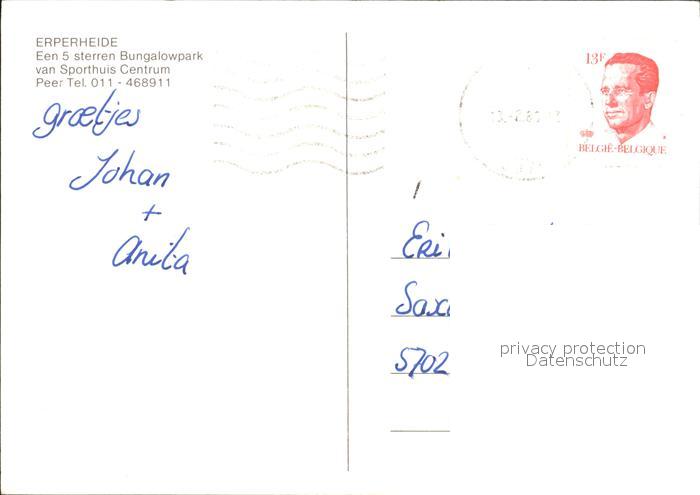 ERPERHEIDE
Een 5 sterren Bungalowpark
van Sporthuis Centrum
Peer Tel. 011 - 468911
groetjes
Johan
+
Anita
13F
BELGIË-BELGIQUE
Eri
Saxo
5702
privacy protection
Datenschutz